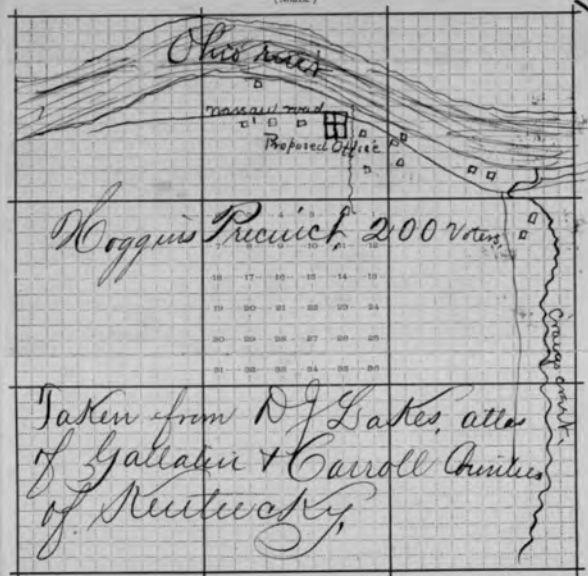 Ohio river
road
Proposed Office
Hoggins Precinct, 200 Voters,
1
7 8 9 10 11 12
18 17 16 15 14 13
19 20 21 22 23 24
30 29 28 27 26 25
31 32 33 34 35 36
Craigs creek
Taken from D J Lakes, atlas
of Gallatin + Carroll Counties
of Kentucky,